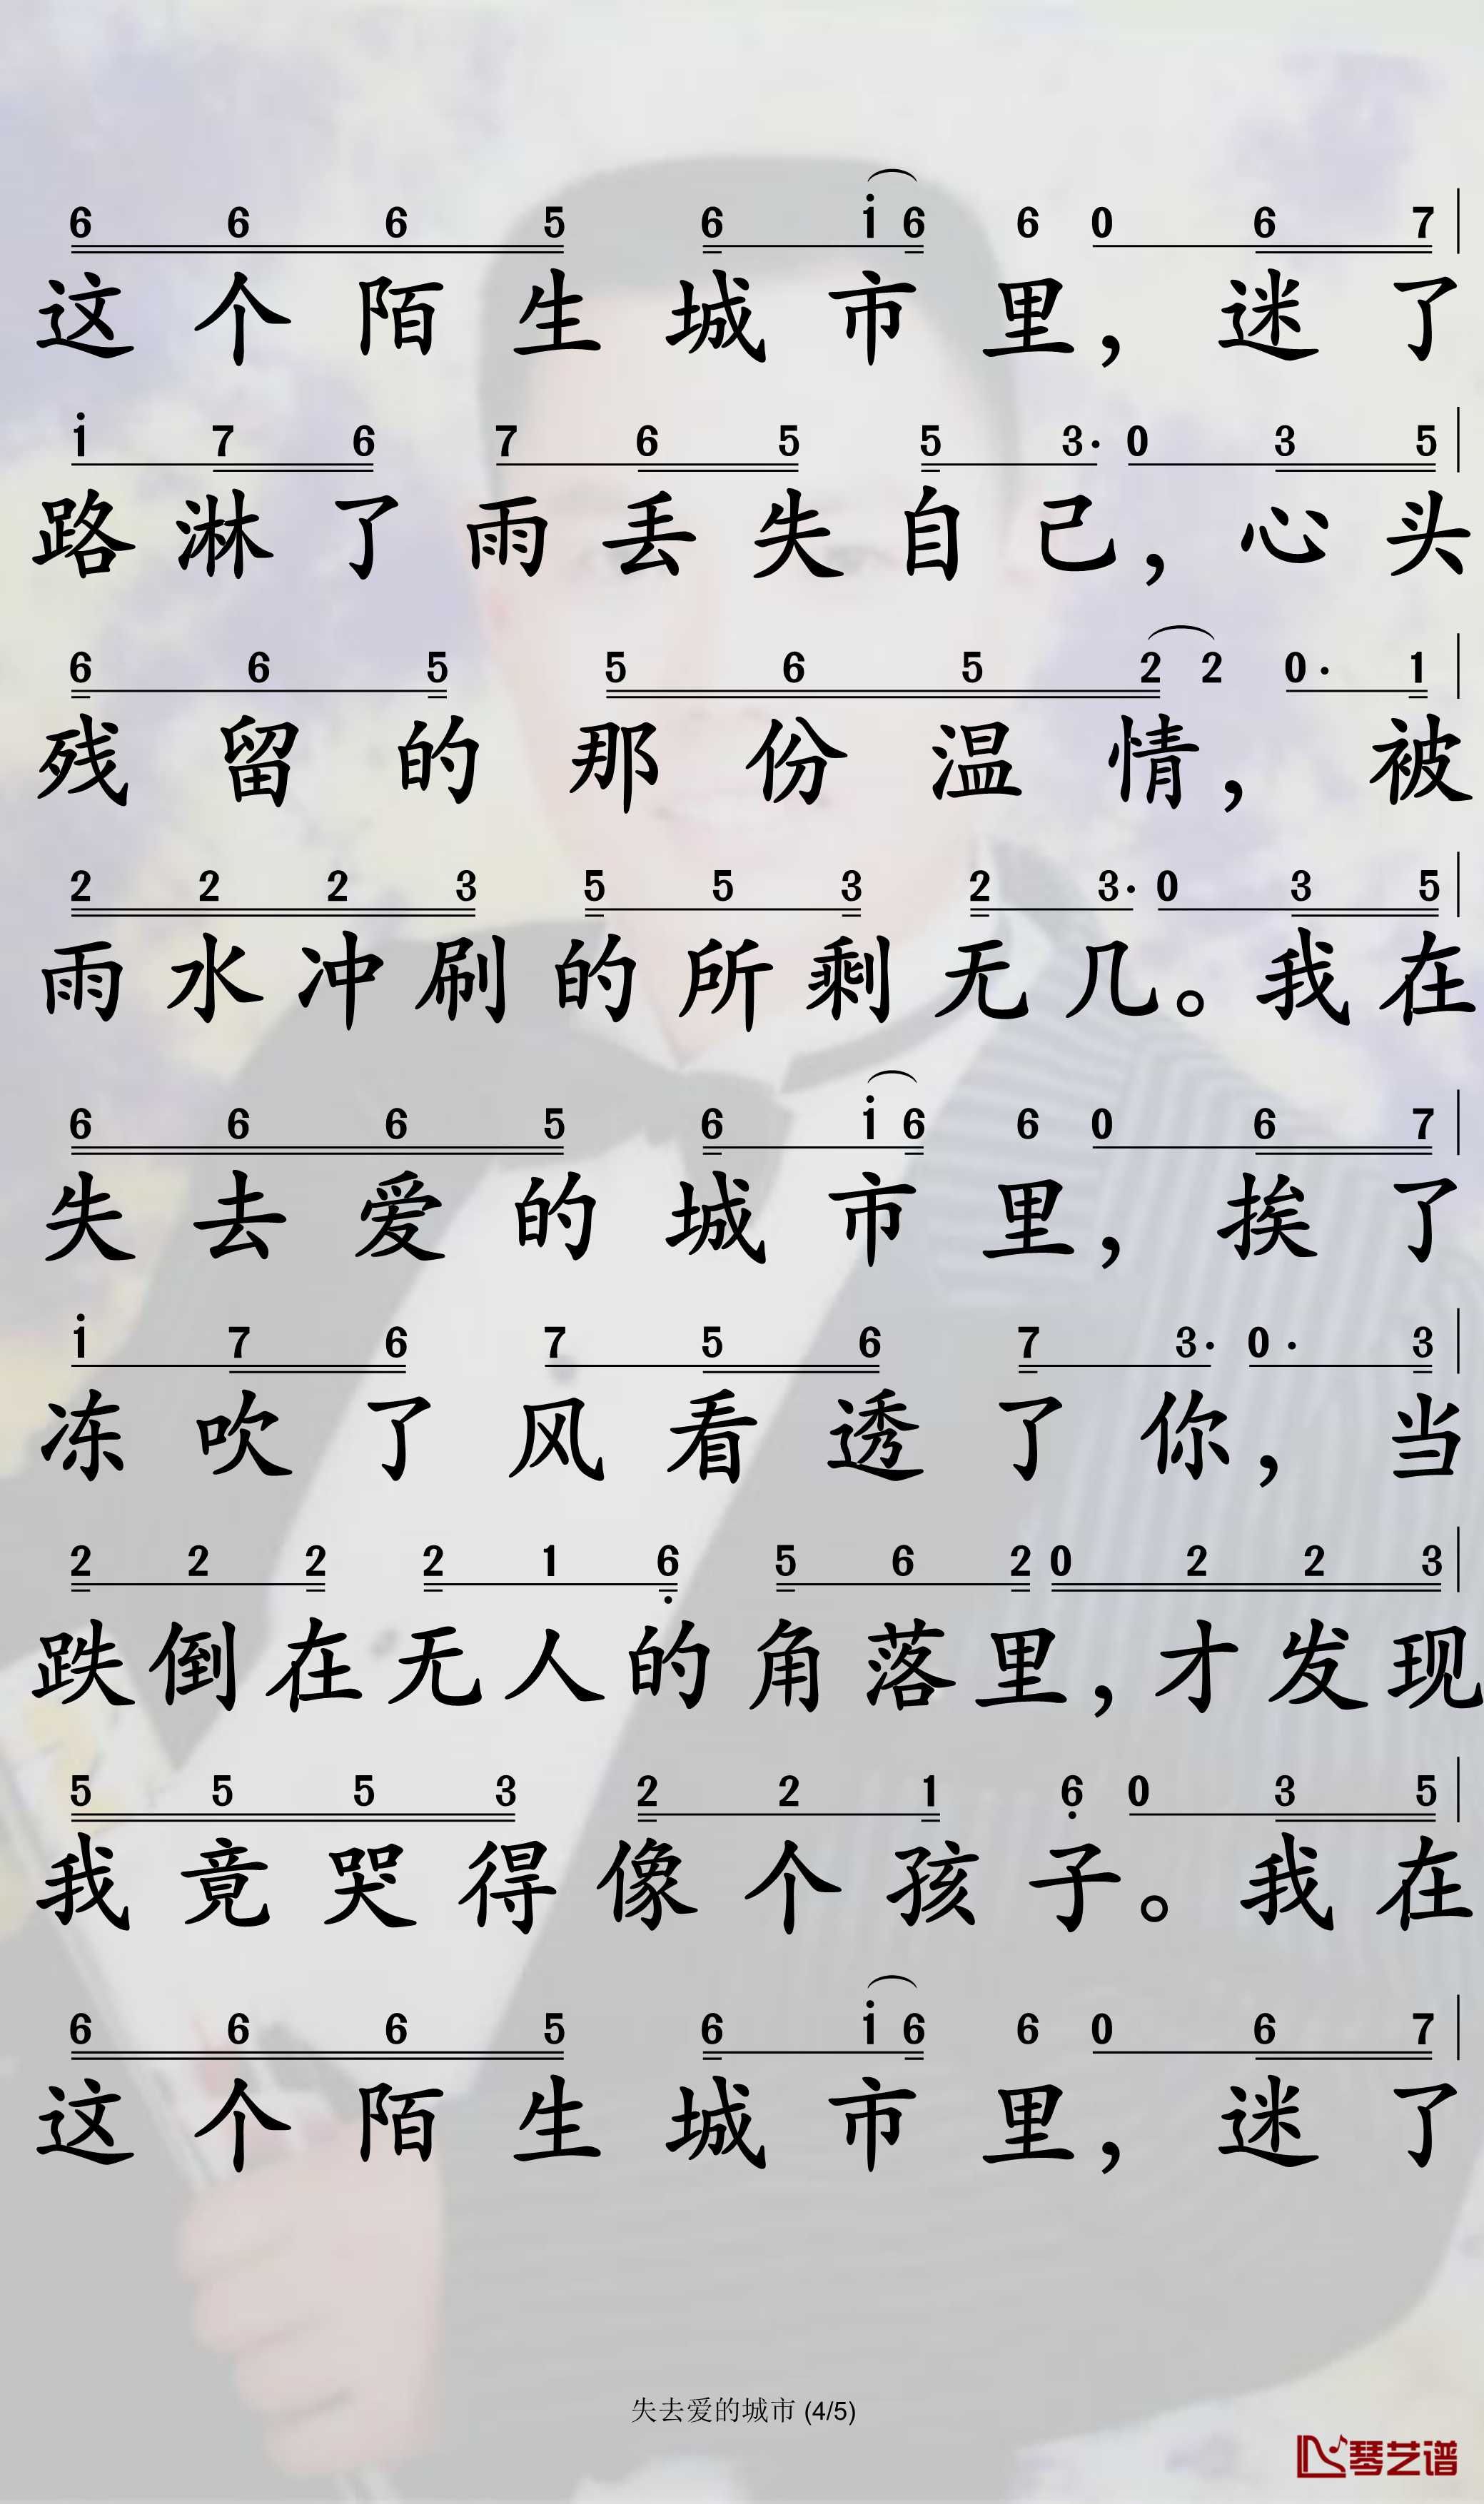 6 6 6 5 6 i 6 6 0 6 7
这个陌生城市里，迷了
i 7 6 7 6 5 5 3· 0 3 5
路淋了雨丢失自己，心头
6 6 5 5 6 5 2 2 0· 1
残留的那份温情，被
2 2 2 3 5 5 3 2 3· 0 3 5
雨水冲刷的所剩无几。我在
6 6 6 5 6 i 6 6 0 6 7
失去爱的城市里，挨了
i 7 6 7 5 6 7 3· 0· 3
冻吹了风看透了你，当
2 2 2 2 1 6 5 6 2 0 2 2 3
跌倒在无人的角落里，才发现
5 5 5 3 2 2 1 6 0 3 5
我竟哭得像个孩子。我在
6 6 6 5 6 i 6 6 0 6 7
这个陌生城市里，迷了
失去爱的城市 (4/5)
琴艺谱